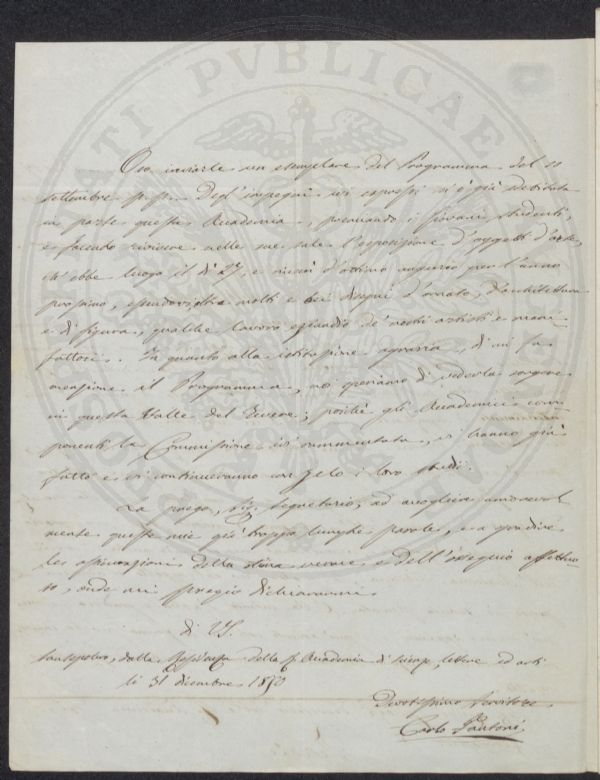 Oso inviarle un esemplare del Programma del 10
settembre p.p. Degl'impegni ivi espressi s'è già sdebitata
in parte questa Accademia, premiando i giovani studenti,
e facendo rivivere nelle sue sale l'esposizione d'oggetti d'arte,
ch'ebbe luogo il dì 27, e riuscì d'ottimo augurio per l'anno
prossimo, essendovi molti e bei disegni d'ornato, d'architettura
e di figura, qualche lavoro eziandio de' nostri artisti e mani
fattori. In quanto alla istituzione agraria, di cui fa
menzione il Programma, noi speriamo di vederla sorgere
in questa Valle del Tevere; poichè gli Accademici com-
ponenti la Commissione ivi rammentata, vi hanno già
fatto e vi continueranno con zelo i loro studi.
La prego, Sig. Segretario, ad accogliere amorevol
mente queste mie già troppo lunghe parole, e a gradire
le espressioni della stima verace e dell'ossequio affettuo-
so, onde mi pregio dichiararmi
di V.S.
Sansepolcro, dalla Residenza della Accademia di scienze, lettere ed arti
li 31 dicembre 1870
Devotissimo Servitore
Carlo
PVBLICAE